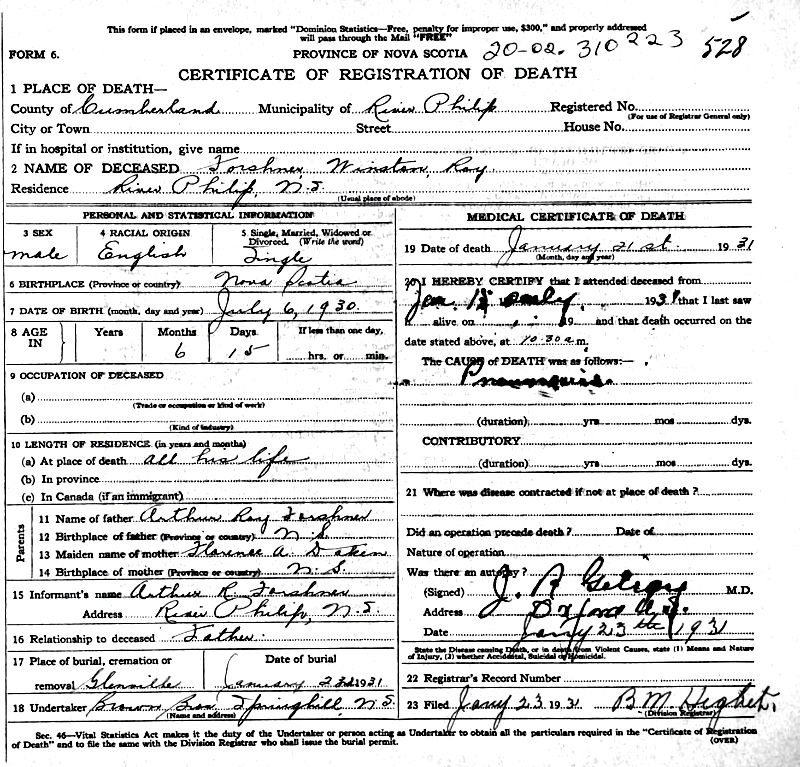 This form if placed in an envelope, marked "Dominion Statistics—Free, penalty for improper use, $300," and properly addressed
will pass through the Mail "FREE"
FORM 6.
PROVINCE OF NOVA SCOTIA
20-02. 310223
528
CERTIFICATE OF REGISTRATION OF DEATH
1 PLACE OF DEATH—
County of Cumberland Municipality of River Philip Registered No.
(For use of Registrar General only)
City or Town Street House No.
If in hospital or institution, give name
2 NAME OF DECEASED Forshner Winston Roy
Residence River Philip, N.S.
(Usual place of abode)
PERSONAL AND STATISTICAL INFORMATION
3 SEX 4 RACIAL ORIGIN 5 Single, Married, Widowed or
Divorced. (Write the word)
male English Single
6 BIRTHPLACE (Province or country) Nova Scotia
7 DATE OF BIRTH (month, day and year) July 6, 1930.
8 AGE IN Years Months Days If less than one day,
6 15 hrs. or min.
9 OCCUPATION OF DECEASED
(a)
(Trade or occupation or kind of work)
(b)
(Kind of industry)
10 LENGTH OF RESIDENCE (in years and months)
(a) At place of death all his life
(b) In province
(c) In Canada (if an immigrant)
Parents
11 Name of father Arthur Roy Forshner
12 Birthplace of father (Province or country) N.S.
13 Maiden name of mother Florence A.
14 Birthplace of mother (Province or country) N.S.
15 Informant's name Arthur R. Forshner
Address River Philip, N.S.
16 Relationship to deceased Father.
17 Place of burial, cremation or Date of burial
removal Glenville January 23d 1931
18 Undertaker Brown Springhill, N.S.
(Name and address)
MEDICAL CERTIFICATE OF DEATH
19 Date of death January 21st 1931
(Month, day and year)
20 I HEREBY CERTIFY that I attended deceased from
Jan. only, 1931 that I last saw
alive on 19 and that death occurred on
date stated above, at 10.30 a m.
The CAUSE of DEATH was as follows:—
(duration) yrs mos dys.
CONTRIBUTORY
(duration) yrs. mos dys.
21 Where was disease contracted if not at place of death?
Did an operation precede death? Date of
Nature of operation
Was there an autopsy?
(Signed) J. R. M.D.
Address Oxford N.S.
Date Jany 23rd 1931
State the Disease causing Death, or in death from Violent Causes, state (1) Means and Nature
of Injury, (2) whether Accidental, Suicidal or Homicidal.
22 Registrar's Record Number
23 Filed Jany 23 1931 B M
(Division Registrar)
Sec. 46—Vital Statistics Act makes it the duty of the Undertaker or person acting as Undertaker to obtain all the particulars required in the "Certificate of Registration
of Death" and to file the same with the Division Registrar who shall issue the burial permit. (OVER)